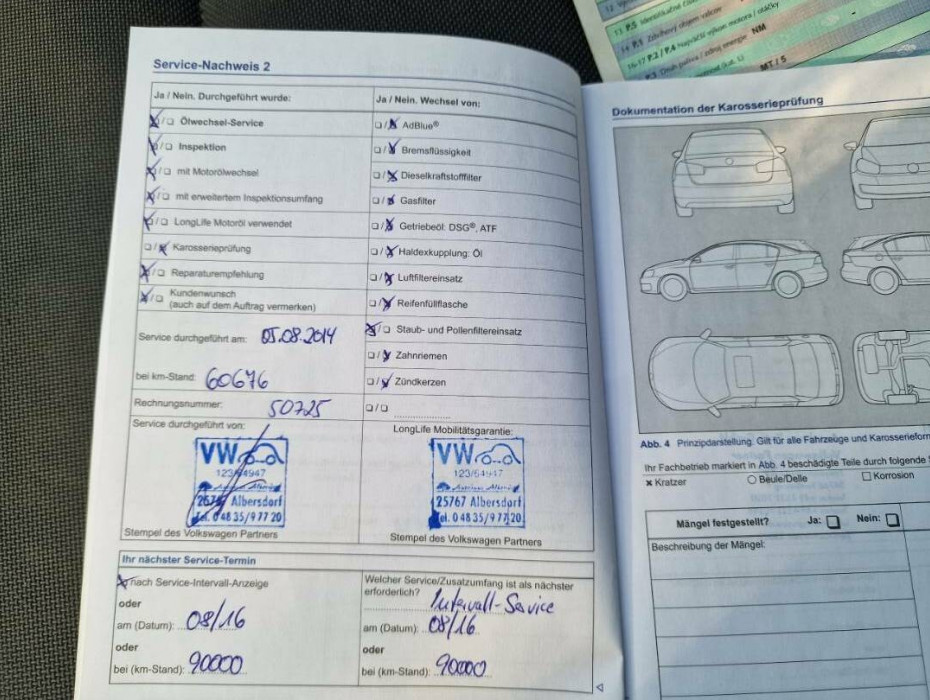 Service-Nachweis 2
Ja / Nein. Durchgeführt wurde:
Ölwechsel-Service
Inspektion
mit Motorölwechsel
mit erweitertem Inspektionsumfang
LongLife Motoröl verwendet
Karosserieprüfung
Reparaturempfehlung
Kundenwunsch
(auch auf dem Auftrag vermerken)
Service durchgeführt am: 05.08.2014
bei km-Stand: 60676
Rechnungsnummer: 50725
Service durchgeführt von:
VW
25767 Albersdorf
Tel. 0 48 35/9 77 20
Stempel des Volkswagen Partners
Ja / Nein. Wechsel von:
AdBlue®
Bremsflüssigkeit
Dieselkraftstofffilter
Gasfilter
Getriebeöl: DSG®, ATF
Haldexkupplung: Öl
Luftfiltereinsatz
Reifenfüllflasche
Staub- und Pollenfiltereinsatz
Zahnriemen
Zündkerzen
LongLife Mobilitätsgarantie:
VW
25767 Albersdorf
Tel. 0 48 35/9 77 20
Stempel des Volkswagen Partners
Ihr nächster Service-Termin
nach Service-Intervall-Anzeige
oder
am (Datum): 08/16
oder
bei (km-Stand): 90000
Welcher Service/Zusatzumfang ist als nächster
erforderlich?
Intervall-Service
am (Datum): 08/16
oder
bei (km-Stand): 90000
13 P.5
14 P.1 Zdvihový objem valcov
16-17 P.2 / P.4 Najväčší výkon motora / otáčky
P.3 Druh paliva / zdroj energie NM
MT / 5
Dokumentation der Karosserieprüfung
Abb. 4 Prinzipdarstellung. Gilt für alle Fahrzeuge und
Ihr Fachbetrieb markiert in Abb. 4 beschädigte Teile durch folgende
Kratzer Beule/Delle Korrosion
Mängel festgestellt? Ja: Nein:
Beschreibung der Mängel: